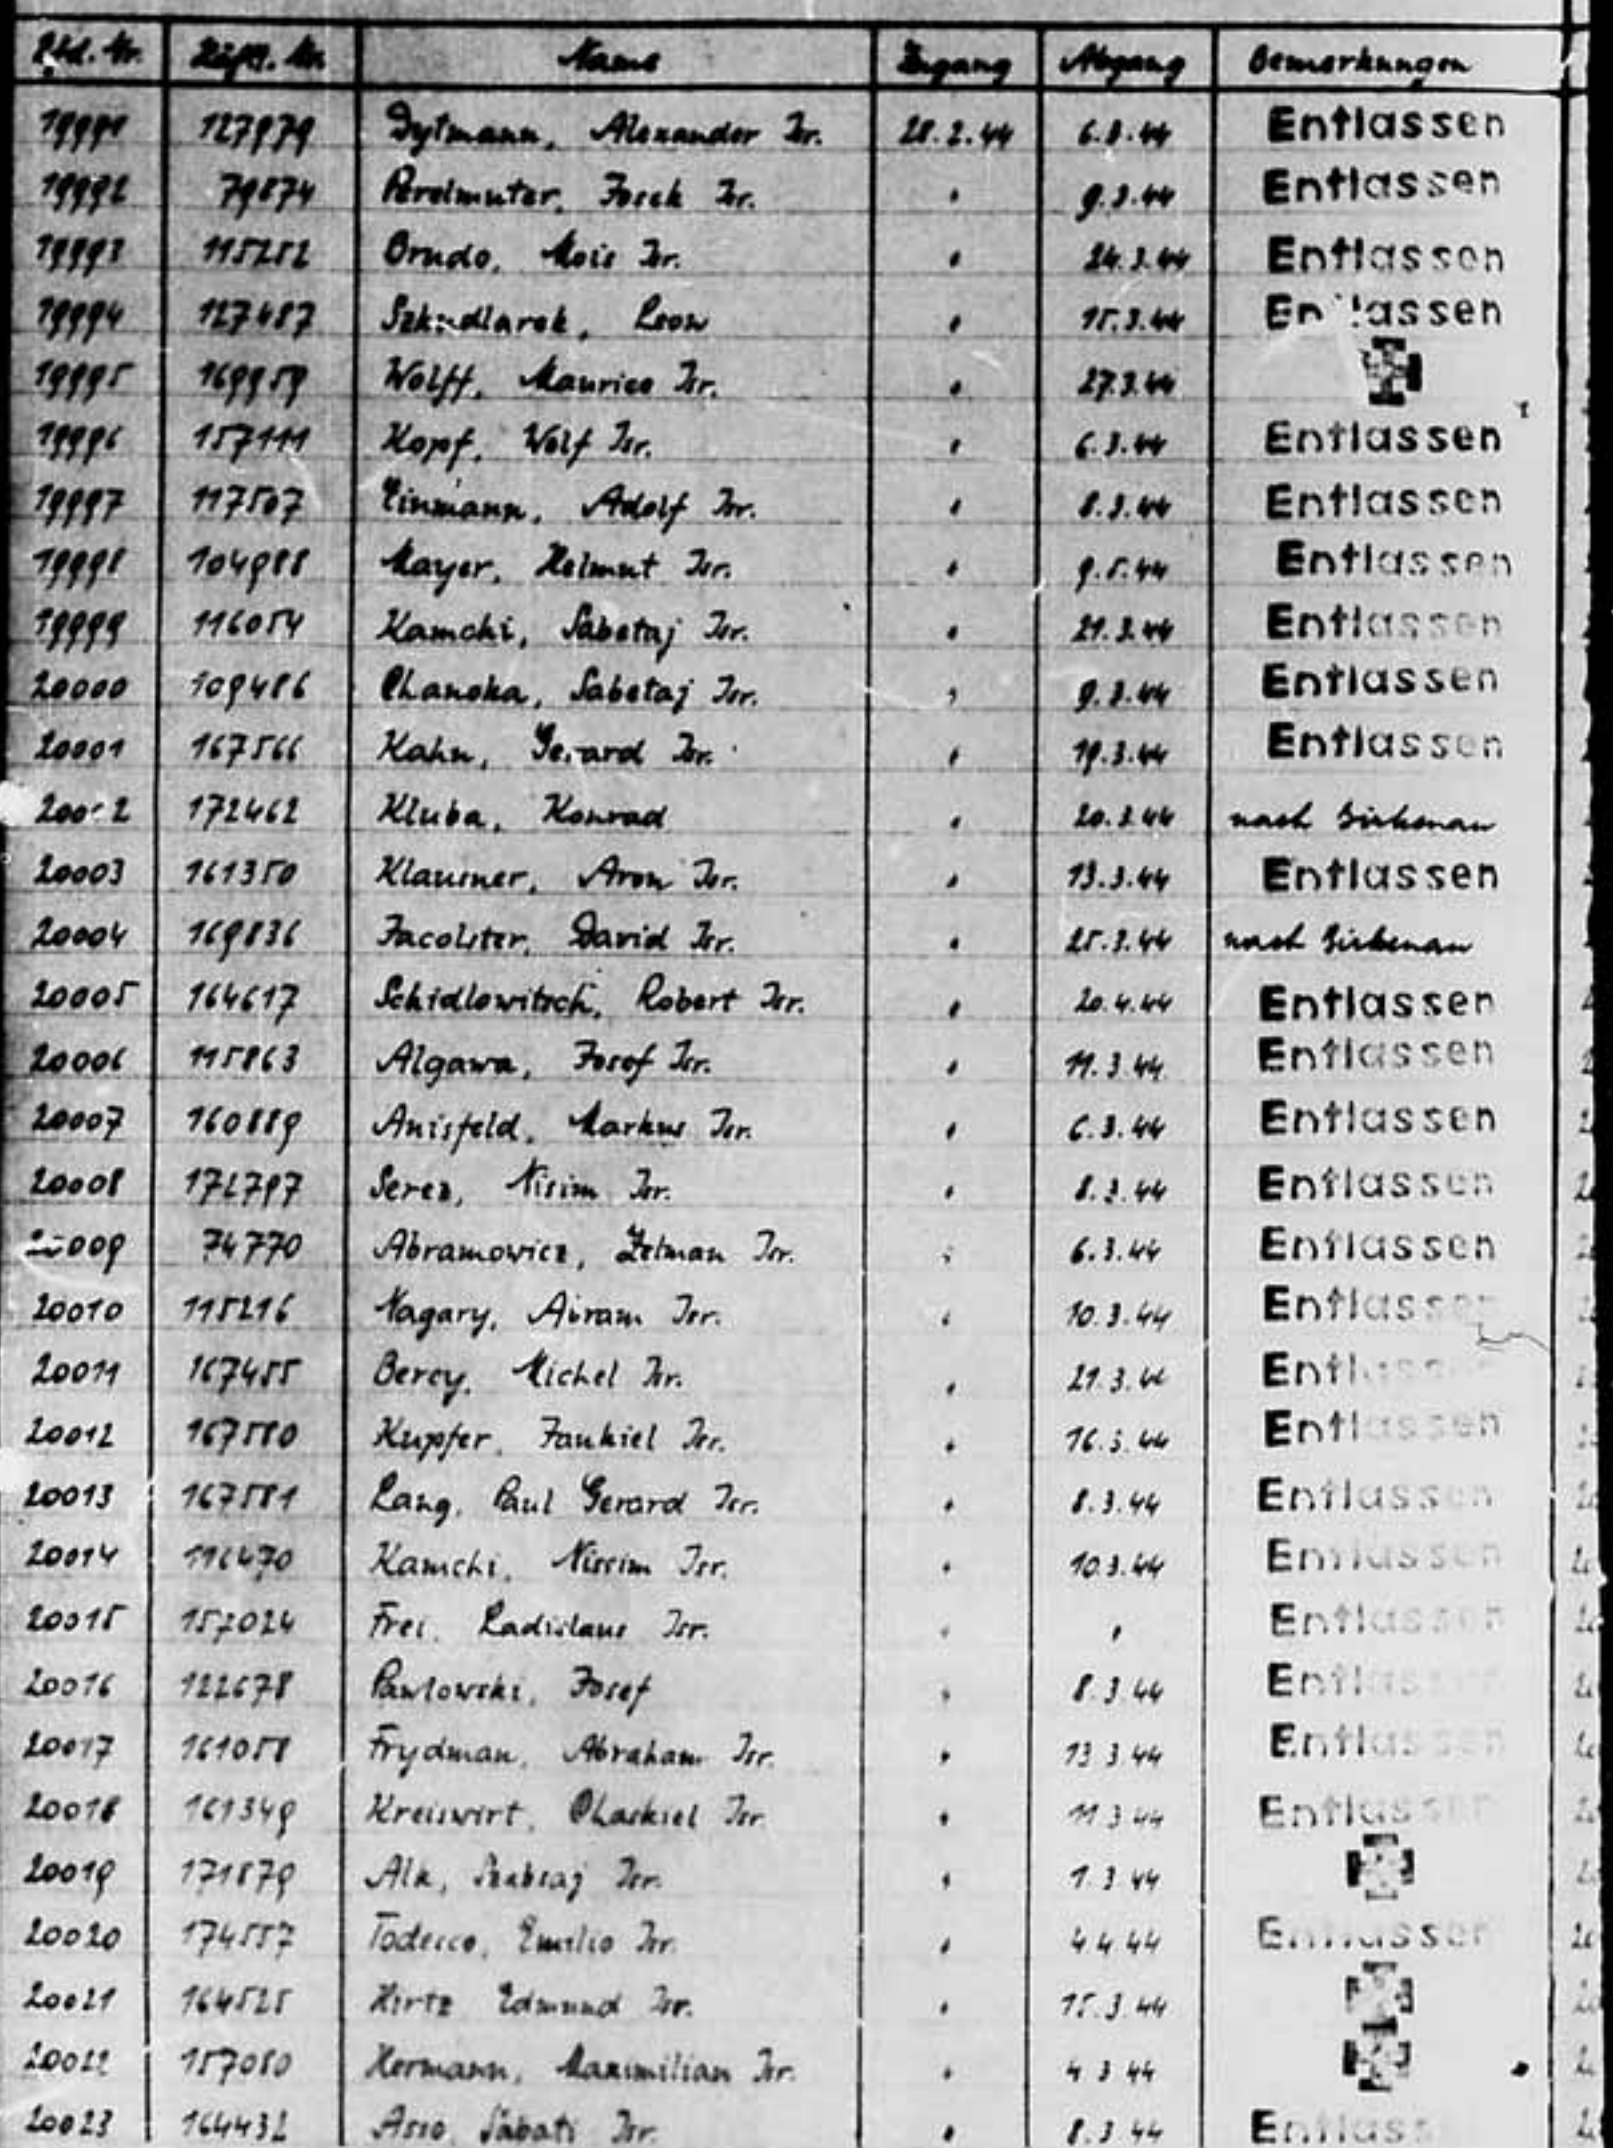 Lfd. Nr. Häftl. Nr. Name Zugang Abgang Bemerkungen
19991 127979 Dytmann, Alexander Isr. 28.2.44 6.3.44 Entlassen
19992 79874 Perelmuter, Josek Isr. " 9.3.44 Entlassen
19993 115252 Isr. " 24.3.44 Entlassen
19994 127487 Leow " 15.3.44 Entlassen
19995 169959 Wolff, Maurice Isr. " 27.3.44
19996 157111 Kopf, Wolf Isr. " 6.3.44 Entlassen
19997 117507 Adolf Isr. " 8.3.44 Entlassen
19998 104988 Mayer, Helmut Isr. " 9.5.44 Entlassen
19999 116054 Kamchi, Sabetaj Isr. " 21.3.44 Entlassen
20000 109486 Chanoka, Sabetaj Isr. " 9.3.44 Entlassen
20001 167566 Kahn, Gerard Isr. " 19.3.44 Entlassen
20002 172462 Kluba, Konrad " 20.3.44 nach Birkenau
20003 161350 Klausner, Aron Isr. " 13.3.44 Entlassen
20004 169836 David Isr. " 25.3.44 nach Birkenau
20005 164617 Schidlowitsch, Robert Isr. " 20.4.44 Entlassen
20006 115863 Algawa, Josef Isr. " 11.3.44 Entlassen
20007 160889 Anisfeld, Markus Isr. " 6.3.44 Entlassen
20008 172797 Serez, Nisim Isr. " 8.3.44 Entlassen
20009 74770 Abramowicz, Zelman Isr. " 6.3.44 Entlassen
20010 115216 Nagary, Abram Isr. " 10.3.44 Entlassen
20011 167455 Bercy, Michel Isr. " 21.3.44 Entlassen
20012 167580 Kupfer, Jankiel Isr. " 16.3.44 Entlassen
20013 167581 Lang, Paul Gerard Isr. " 8.3.44 Entlassen
20014 116470 Kamchi, Nissim Isr. " 10.3.44 Entlassen
20015 157024 Frei, Ladislaus Isr. " " Entlassen
20016 122678 Pawlowski, Josef " 8.3.44 Entlassen
20017 161058 Frydman, Abraham Isr. " 13.3.44 Entlassen
20018 161349 Kreiswirt, Chaskiel Isr. " 11.3.44 Entlassen
20019 171879 Isr. " 1.3.44
20020 174557 Tedesco, Emilio Isr. " 4.4.44 Entlassen
20021 164525 Hirtz Edmund Isr. " 15.3.44
20022 157080 Hermann, Maximilian Isr. " 4.3.44
20023 164432 Sabati Isr. " 8.3.44 Entlassen